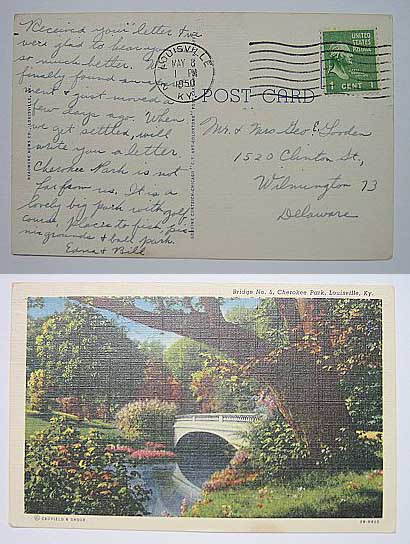 Received your letter & we
were glad to hear you
so much better. We
finally found an apt
went & just moved a
few days ago. When
we get settled, will
write you a letter.
Cherokee Park is not
far from us. It is a
lovely big park with golf
course, places to fish, pic
nic grounds & ball park.
Edna & Bill
LOUISVILLE
MAY 8
1 PM
1950
KY.
UNITED
STATES
POSTAGE
1 CENT 1
POST CARD
Mr. & Mrs Geo E. Looden
1520 Clinton St.,
Wilmington 73
Delaware
Bridge No. 5, Cherokee Park, Louisville, Ky.
© CAUFIELD & SHOOK